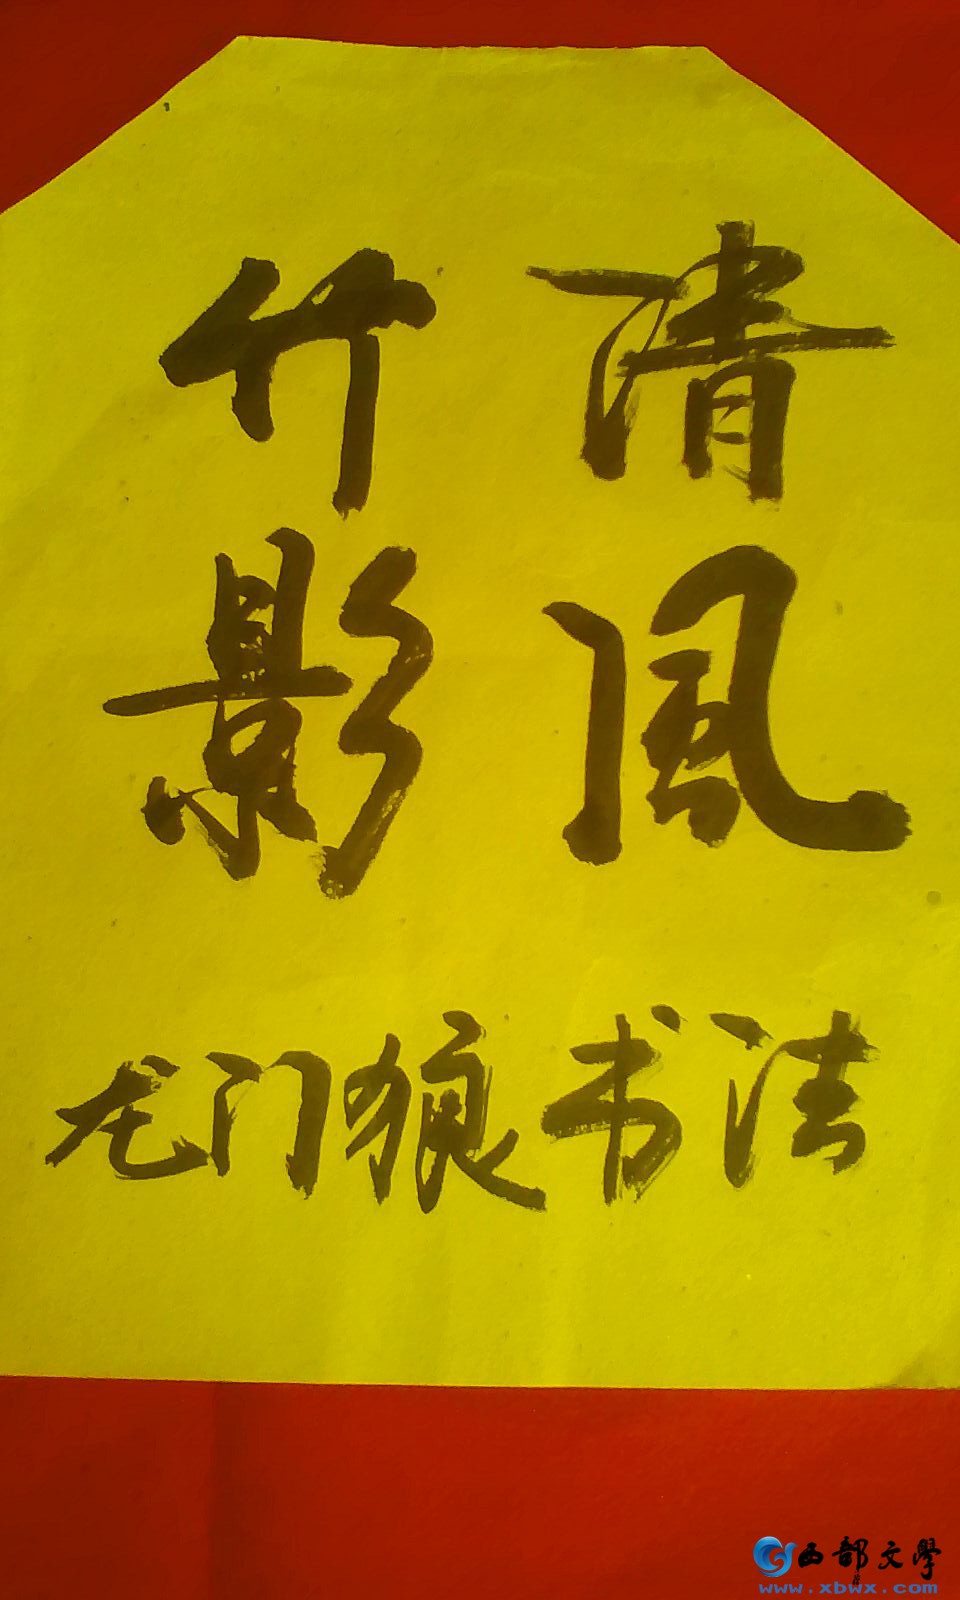 清风
竹影
龙门狼书法
西部文學
www.xbwx.com